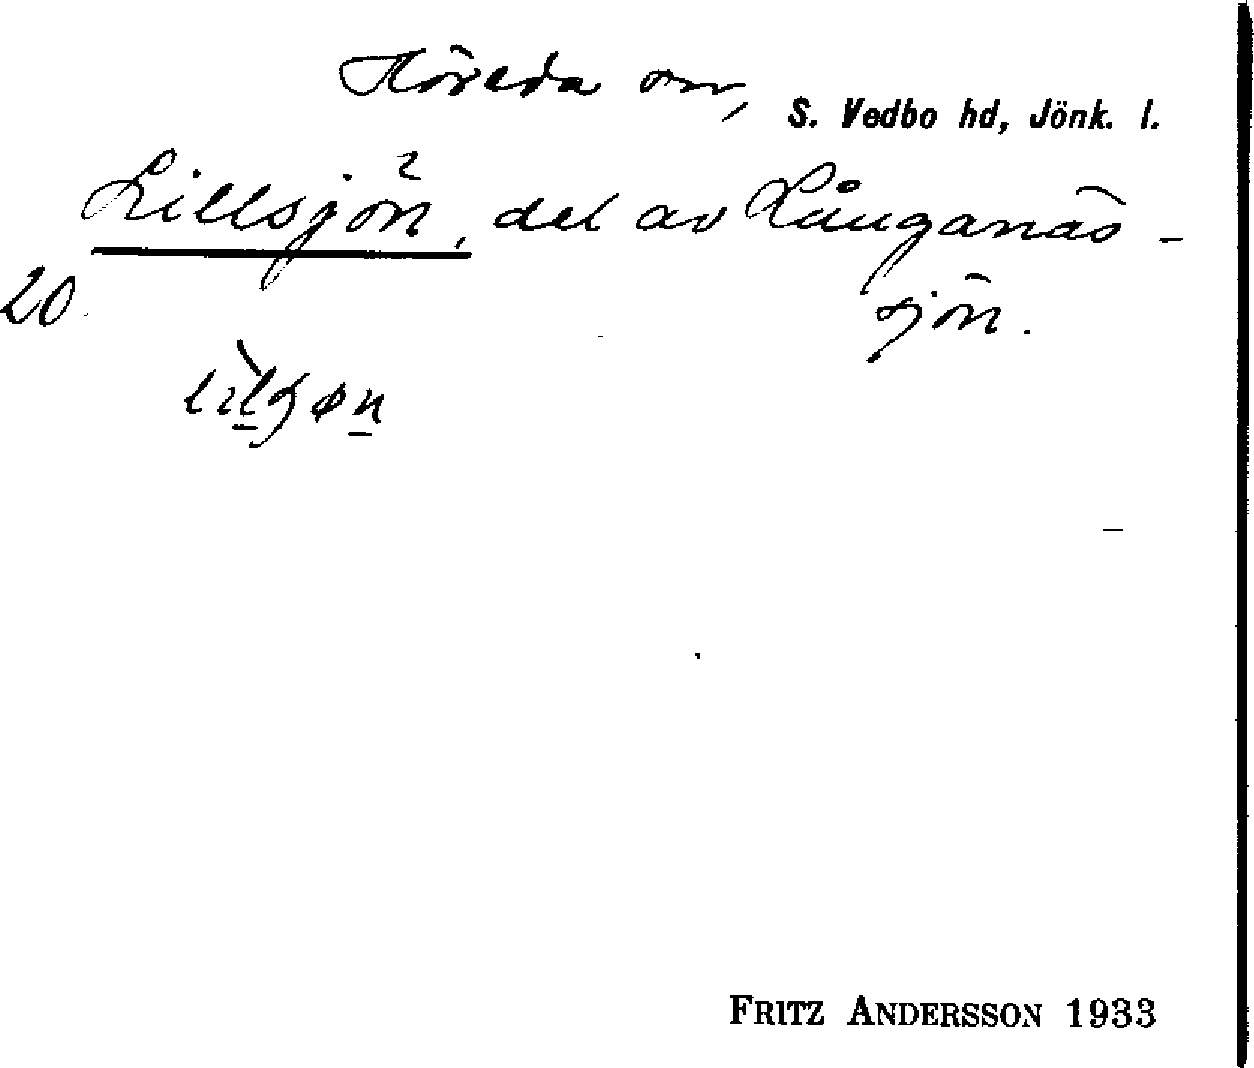 Höreda sn,
S. Vedbo hd, Jönk. l.
Lillsjön, del av Långanäs-
sjön.
20
FRITZ ANDERSSON 1933